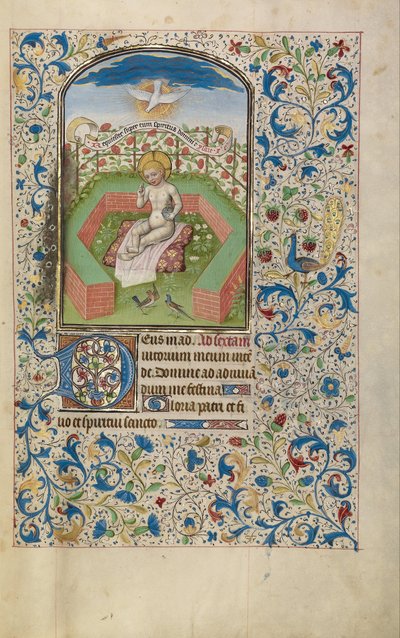 Et requiescet super eum spiritus domini
Deus in ad. Ad sextam
iutorium meum inten
de. Domine ad adiuuan
dum me festina
Gloria patri et fi
lio et spiritui sancto.